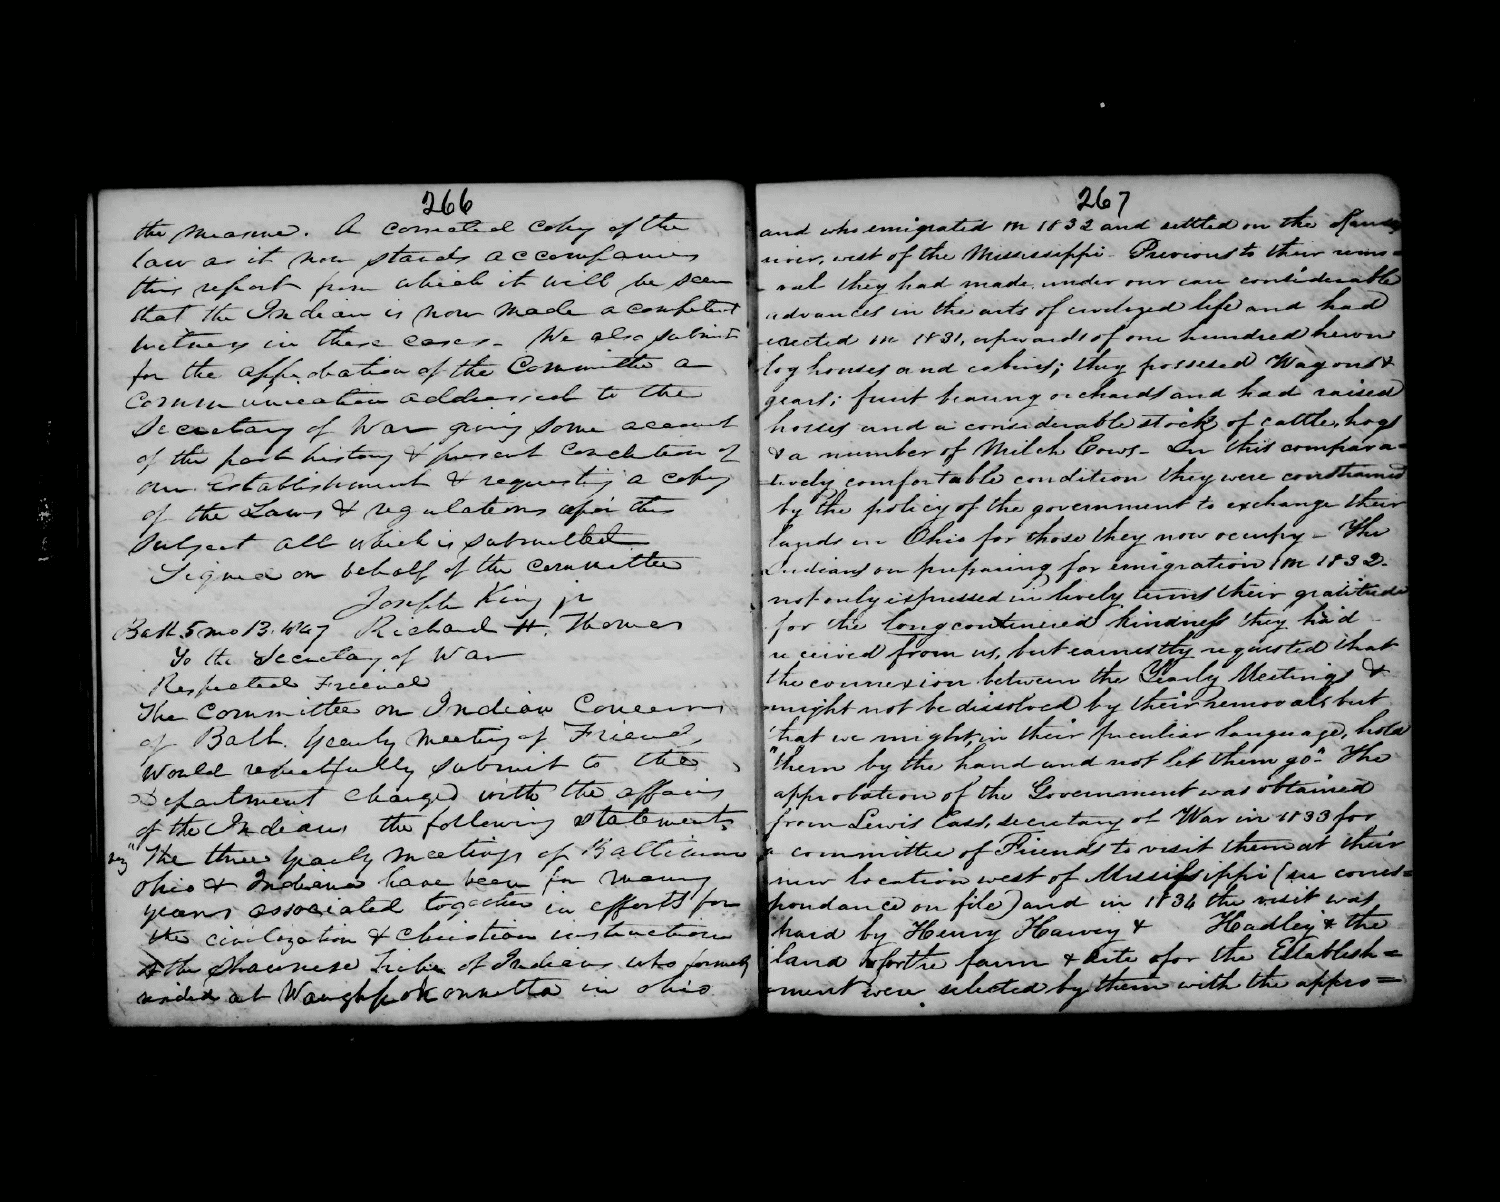 266
the measure. A corrected copy of the
law as it now stands accompanies
this report from which it will be seen
that the Indian is now made a competent
witness in these cases - We also submit
for the approbation of the Committee a
communication addressed to the
Secretary of War giving some account
of the past history & present condition of
our Establishment & requesting a copy
of the Laws & regulations upon this
subject all which is submitted
Signed on behalf of the committee
Joseph King jr
Balt 5 mo 13. 1847 Richard H. Thomas
To the Secretary of War
Respected Friend
The Committee on Indian Concerns
of Balt. Yearly Meeting of Friends
would respectfully submit to the
Department charged with the affairs
of the Indians the following statements
viz "The three yearly meetings of Baltimore
Ohio & Indiana have been for many
years associated together in efforts for
the civilization & christian instruction
of the Shawnese tribe of Indians who formerly
resided at Waughpokonnetta in Ohio
267
and who emigrated in 1832 and settled on the Kansas
river, west of the Mississippi - Previous to their remo=
-val they had made, under our care considerable
advances in the arts of civilized life and had
erected in 1831, upwards of one hundred hewn
log houses and cabins; they possessed Wagons &
gears; fruit bearing orchards and had raised
horses and a considerable stock of cattle, hogs
& a number of Milch Cows - In this compara=
-tively comfortable condition they were constrained
by the policy of the government to exchange their
lands in Ohio for those they now occupy - The
Indians on preparing for emigration in 1832.
not only expressed in lively terms their gratitude
for the long continued kindness they had
received from us, but earnestly requested that
the connexion between the Yearly Meetings &
might not be dissolved by their removals but
that we might, in their peculiar language, hold
"them by the hand and not let them go". The
approbation of the Government was obtained
from Lewis Cass, secretary of War in 1833 for
a committee of Friends to visit them at their
new location west of Mississippi (see corres=
pondance on file) and in 1834 the visit was
paid by Henry Harvey & Hadley & the
land for the farm & site for the Establish=
ment were selected by them with the appro=